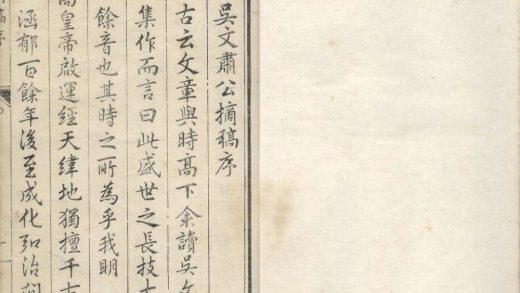 吳文肅公摘稿序
古云文章與時高下余讀吳文
集作而言曰此盛世之長技大
餘音也其時之所為乎我明
高皇帝啟運經天緯地獨擅千古
涵郁百餘年後至成化弘治間
稿序